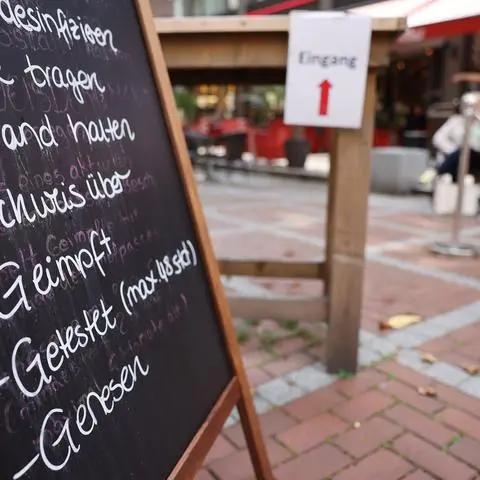 desinfizieren
tragen
and halten
chweis über
Geimpft
-Getestet (max. 48 std)
-Genesen
Eingang